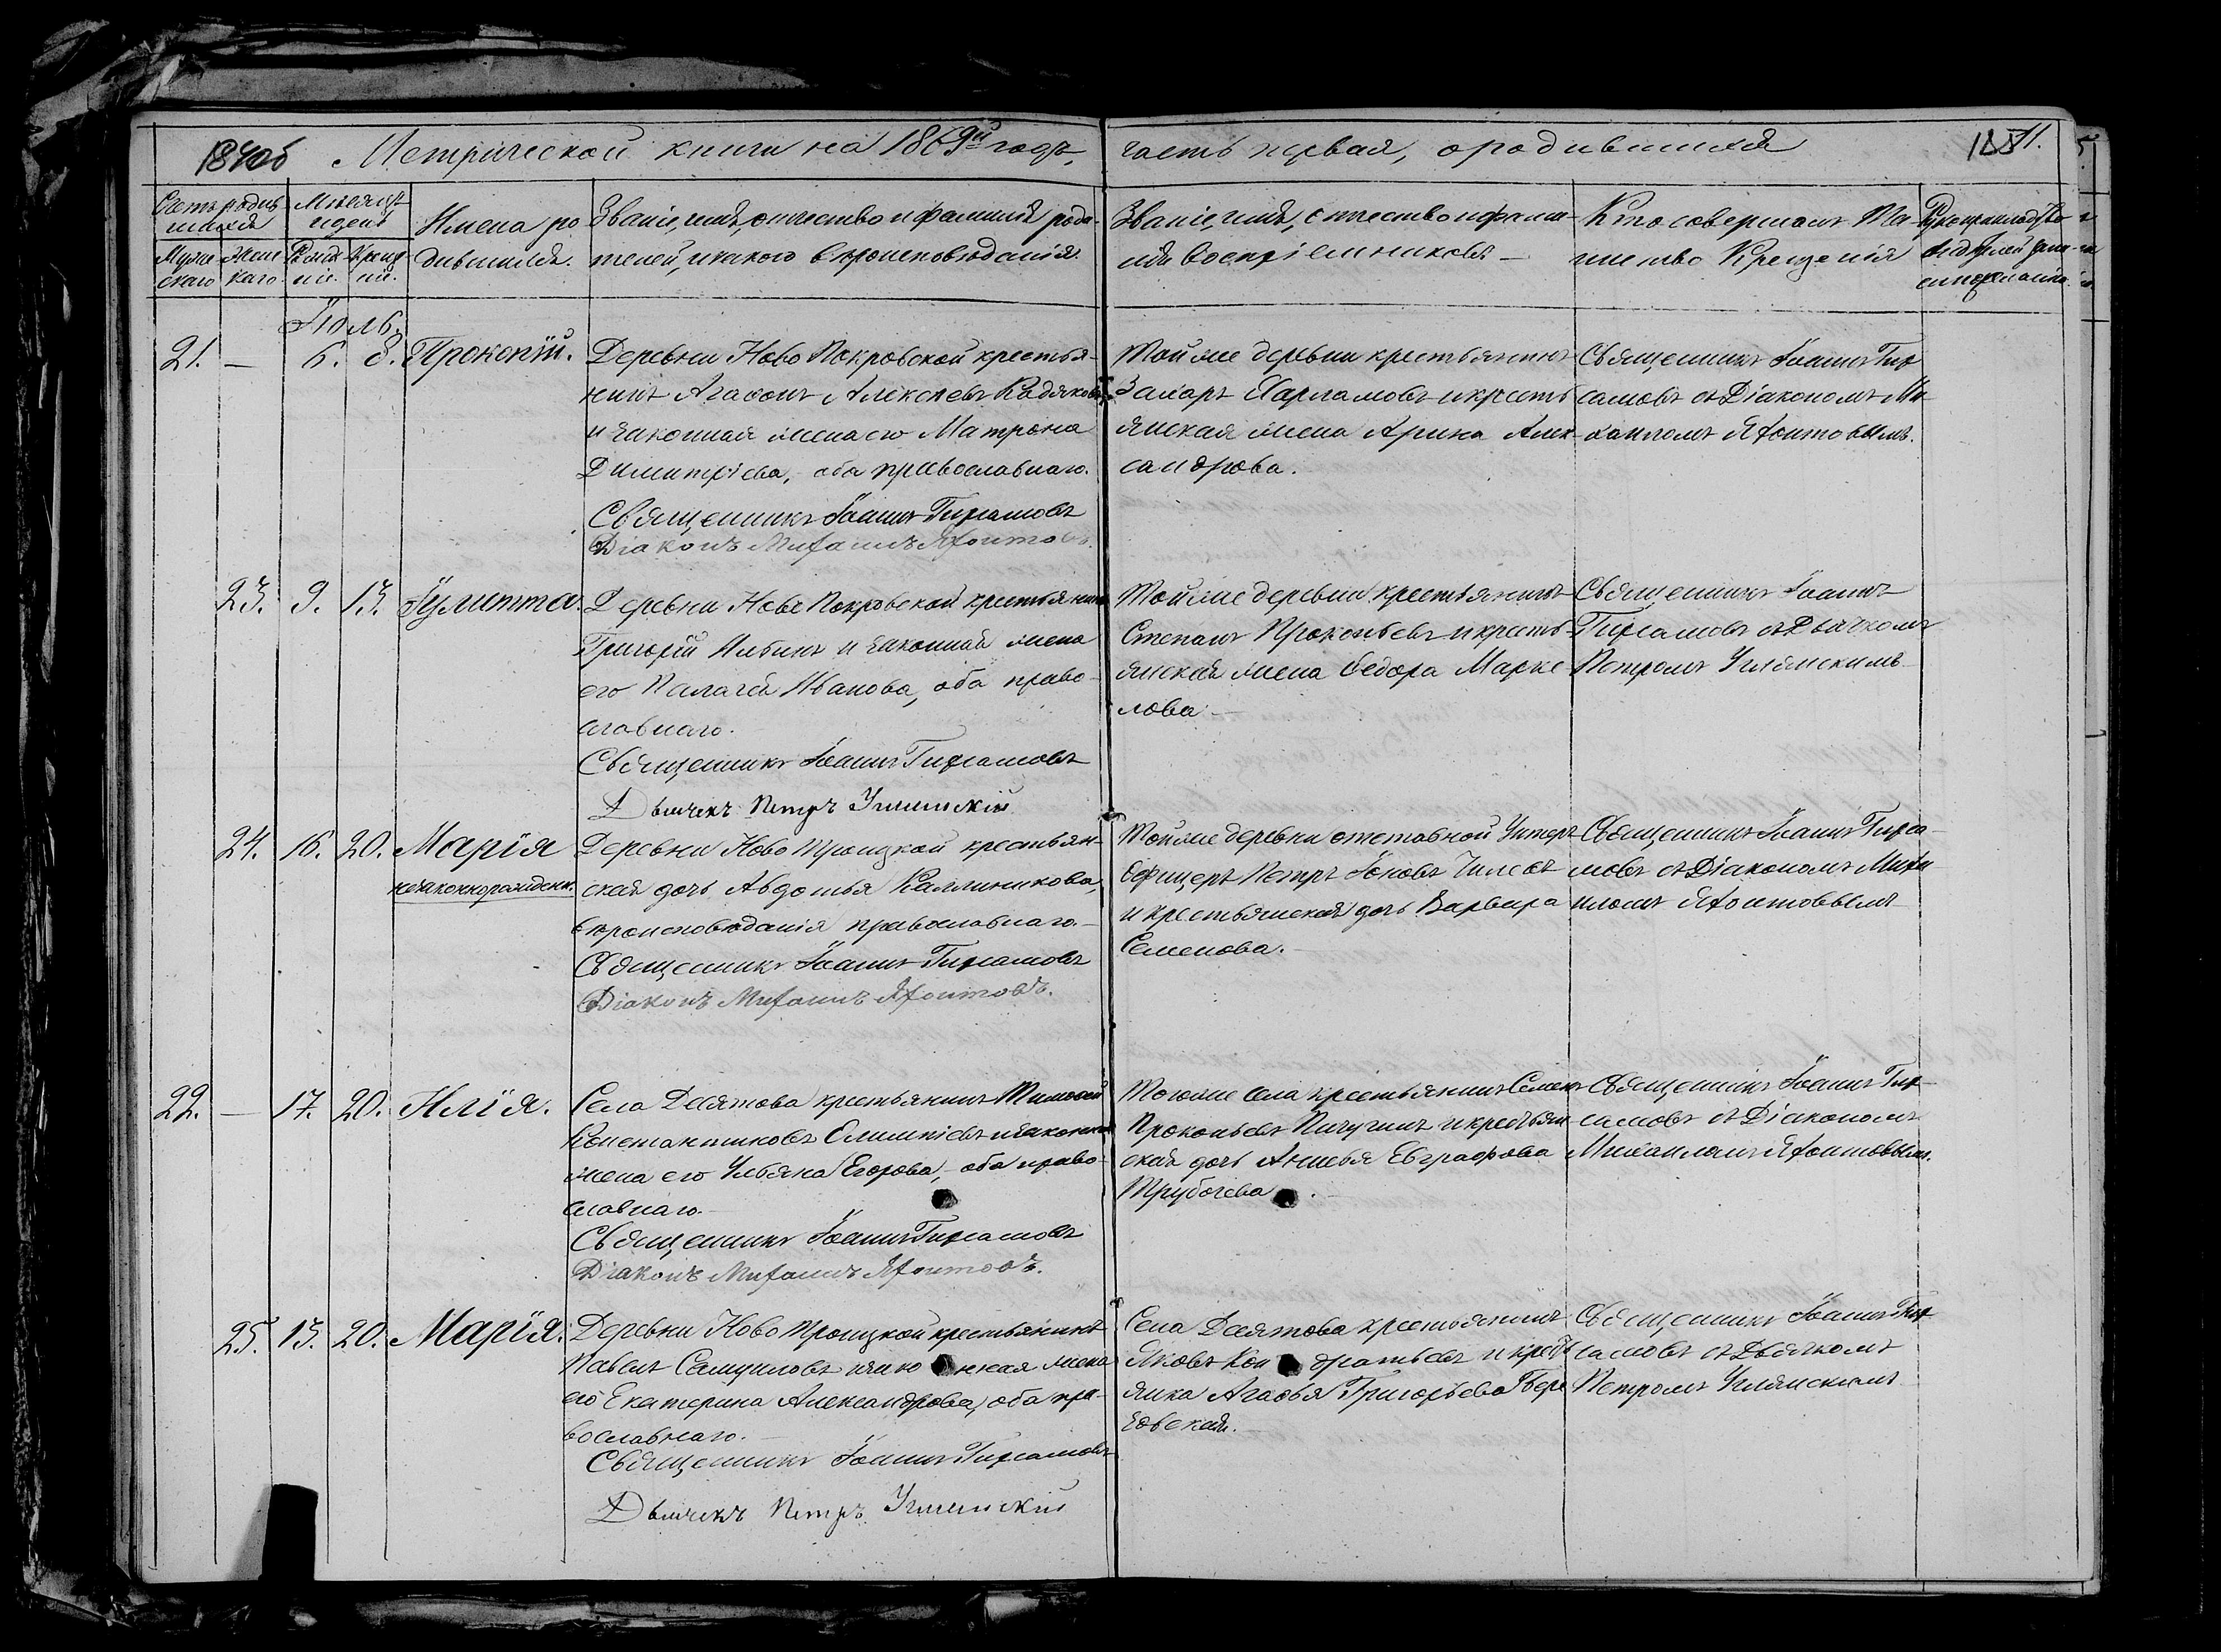 Метрической книги на 1869й годъ, часть первая, о родившихся
11.
Счетъ родив-
шихся
Муже-
скаго
Жен-
скаго
Мѣсяцъ
и день
Рожде-
нія.
Креще-
нія.
Имена ро-
дившихся.
Званіе, имя, отчество и фамилія роди-
телей, и какого вѣроисповѣданія.
Званіе, имя, отчество и фами-
лія воспріемниковъ
Кто совершалъ Та-
инство Крещенія
Рукоприкладство
Іюль.
21. — 6. 8. Прокопій.
Деревни Ново Покровской крестья-
нинъ Агафонъ Алексѣевъ
и законная жена его Матрона
Димитріева, оба православнаго.
Священникъ Іоаннъ
Діаконъ Михаилъ Яхонтовъ.
Той же деревни крестьянинъ
Захаръ Харламовъ и кресть-
янская жена Арина Алек-
сандрова.
Священникъ Іоаннъ
съ Діакономъ Ми-
хаиломъ Яхонтовымъ.
23. 9. 13. Іулитта.
Деревни Ново Покровской крестьянинъ
Григорій и законная жена
его Палагея Иванова, оба право-
славнаго.
Священникъ Іоаннъ
Дьячекъ Петръ Углянскій
Той же деревни крестьянинъ
Степанъ Прокопьевъ и кресть-
янская жена Ѳедора Марке-
лова.
Священникъ Іоаннъ
съ Дьячкомъ
Петромъ Углянскимъ
24. 16. 20. Марія
незаконнорожденн.
Деревни Ново Троицкой крестьян-
ская дочь Авдотья Каллиникова,
вѣроисповѣданія православнаго.
Священникъ Іоаннъ
Діаконъ Михаилъ Яхонтовъ.
Той же деревни отставной Унтеръ
Офицеръ Петръ Іоновъ
и крестьянская дочь Варвара
Семенова.
Священникъ Іоаннъ
съ Діакономъ Миха-
иломъ Яхонтовымъ
22. — 17. 20. Илія.
Села Десятова крестьянинъ Тимофей
Константиновъ и законная
жена его Ульяна Егорова, оба право-
славнаго.
Священникъ Іоаннъ
Діаконъ Михаилъ Яхонтовъ.
Тогоже села крестьянинъ Семенъ
Прокопьевъ Пичугинъ и крестьян-
ская дочь Анисья Евграфова
Трубочева.
Священникъ Іоаннъ
съ Діакономъ
Михаиломъ Яхонтовымъ.
25. 15. 20. Марія.
Деревни Ново Троицкой крестьянинъ
Павелъ Самуиловъ и законная жена
его Екатерина Александрова, оба пра-
вославнаго.
Священникъ Іоаннъ
Дьячекъ Петръ Углянскій
Села Десятова крестьянинъ
Яковъ Кондратьевъ и кресть-
янка Агафья Григорьева
Священникъ Іоаннъ
съ Дьячкомъ
Петромъ Углянскимъ